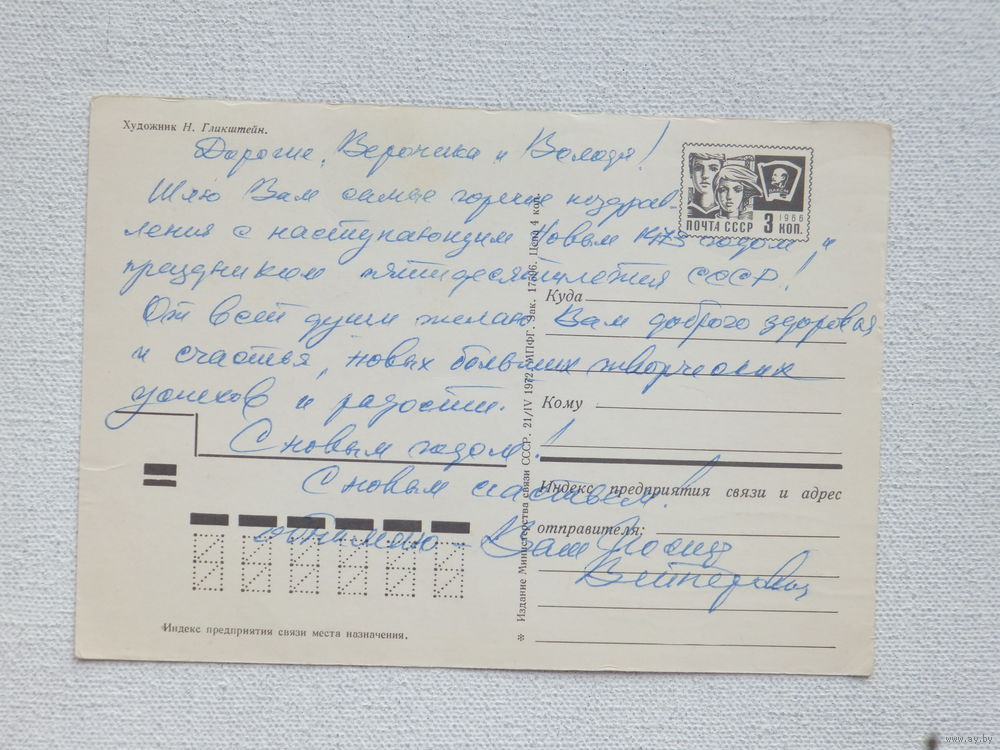 Художник Н. Гликштейн.
Дорогие, Вероника и Володя!
Шлю Вам самые горячие поздрав-
ления с наступающим Новым 1973 годом и
праздником пятидесятилетия СССР!
От всей души желаю Вам доброго здоровья
и счастья, новых больших творческих
успехов и радости.
С новым годом!
С новым счастьем!
Ваш Иосиф
ПОЧТА СССР 3 КОП.
1966
ВЛКСМ
Куда
Кому
Индекс предприятия связи и адрес
отправителя:
Издание Министерства связи СССР. 21/IV 1972. МПФГ. Зак. 17506. Цена 4 коп.
Индекс предприятия связи места назначения.
www.ay.by